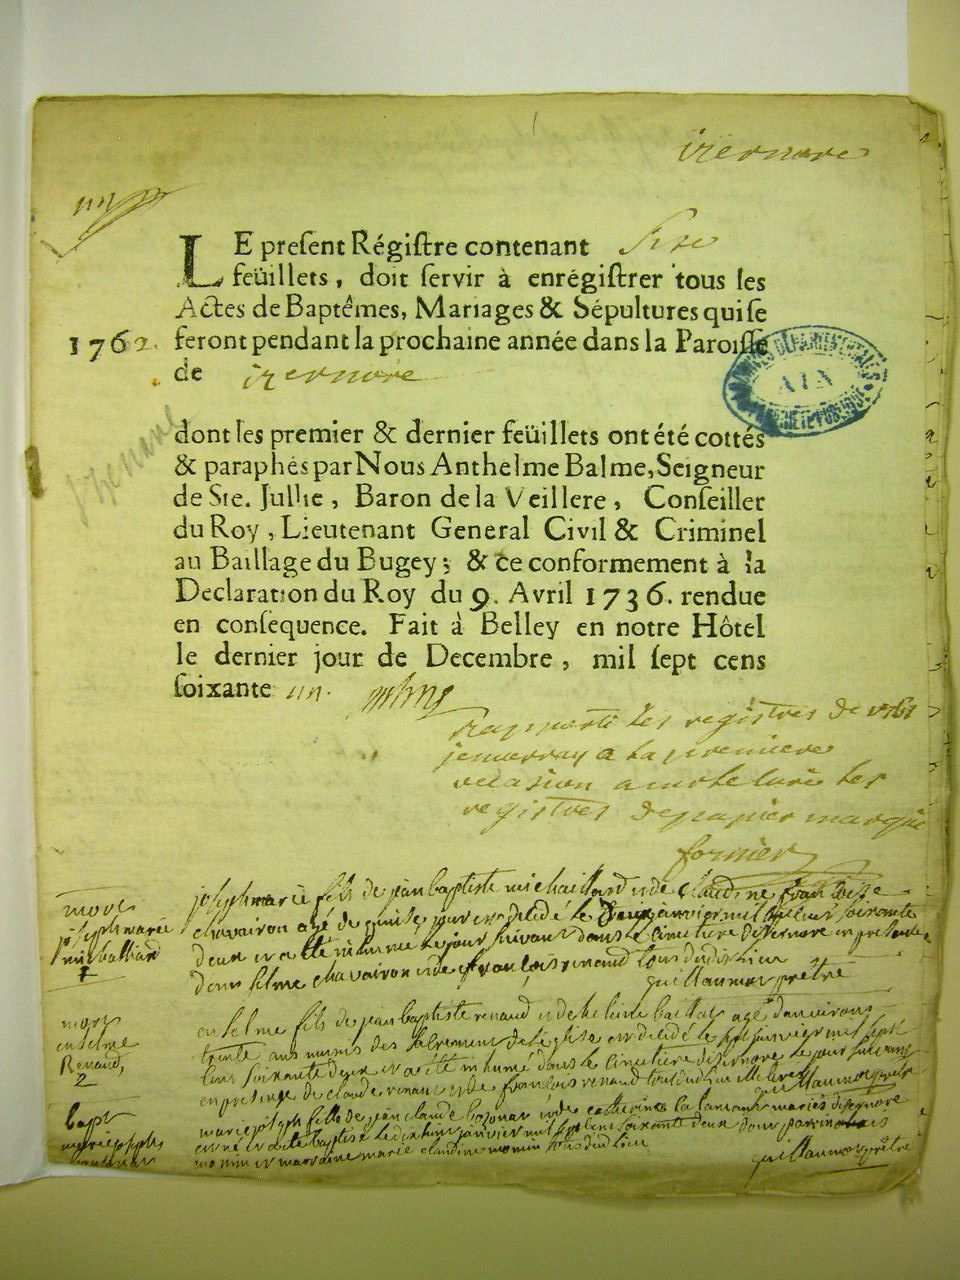 izernore
LE preſent Régiſtre contenant
feüillets, doit ſervir à enrégiſtrer tous les
Actes de Baptêmes, Mariages & Sépultures qui ſe
1762. feront pendant la prochaine année dans la Paroiſſe
de izernore
AIN
dont les premier & dernier feüillets ont été cottés
& paraphés par Nous Anthelme Balme, Seigneur
de Ste. Jullie, Baron de la Veillere, Conſeiller
du Roy, Lieutenant General Civil & Criminel
au Baillage du Bugey; & ce conformement à la
Declaration du Roy du 9. Avril 1736. rendue
en conſequence. Fait à Belley en notre Hôtel
le dernier jour de Decembre, mil ſept cens
ſoixante un.
Rapporté les registres de 1761
jenverray a la premiere
occasion a mr le curé les
registres de papier marqué
fornier
mort
joseph marie
1
joseph marie fils de jean baptiste michaillard et de claudine francoise
chavairon agé de quinse jours est decedé le deux janvier mil sept cent soixante
deux et a été inhumé le jour suivant dans le cimetiere dizernore en presence
danselme chavairon et de francois renaud tous dudit lieu
guillaumot prêtre
mort
enselme
Renaud
2
enselme fils de jean baptiste renaud et de heleine baillat agé denvirons
trente ans munis des sacrement de léglise est decedé le janvier mil sept
cent soixante deux et a été inhumé dans le cimetiere dizernore le jour suivant
en presence de claude renaud et de francois renaud tout dudit lieu guillaumot prêtre
bapt
marie joseph fille de jean claude et de catherine mariés dizernore
est né et a été baptisé le janvier mil sept cent soixante deux
momin et marraine marie claudine momin tous dudit lieu
guillaumot prêtre